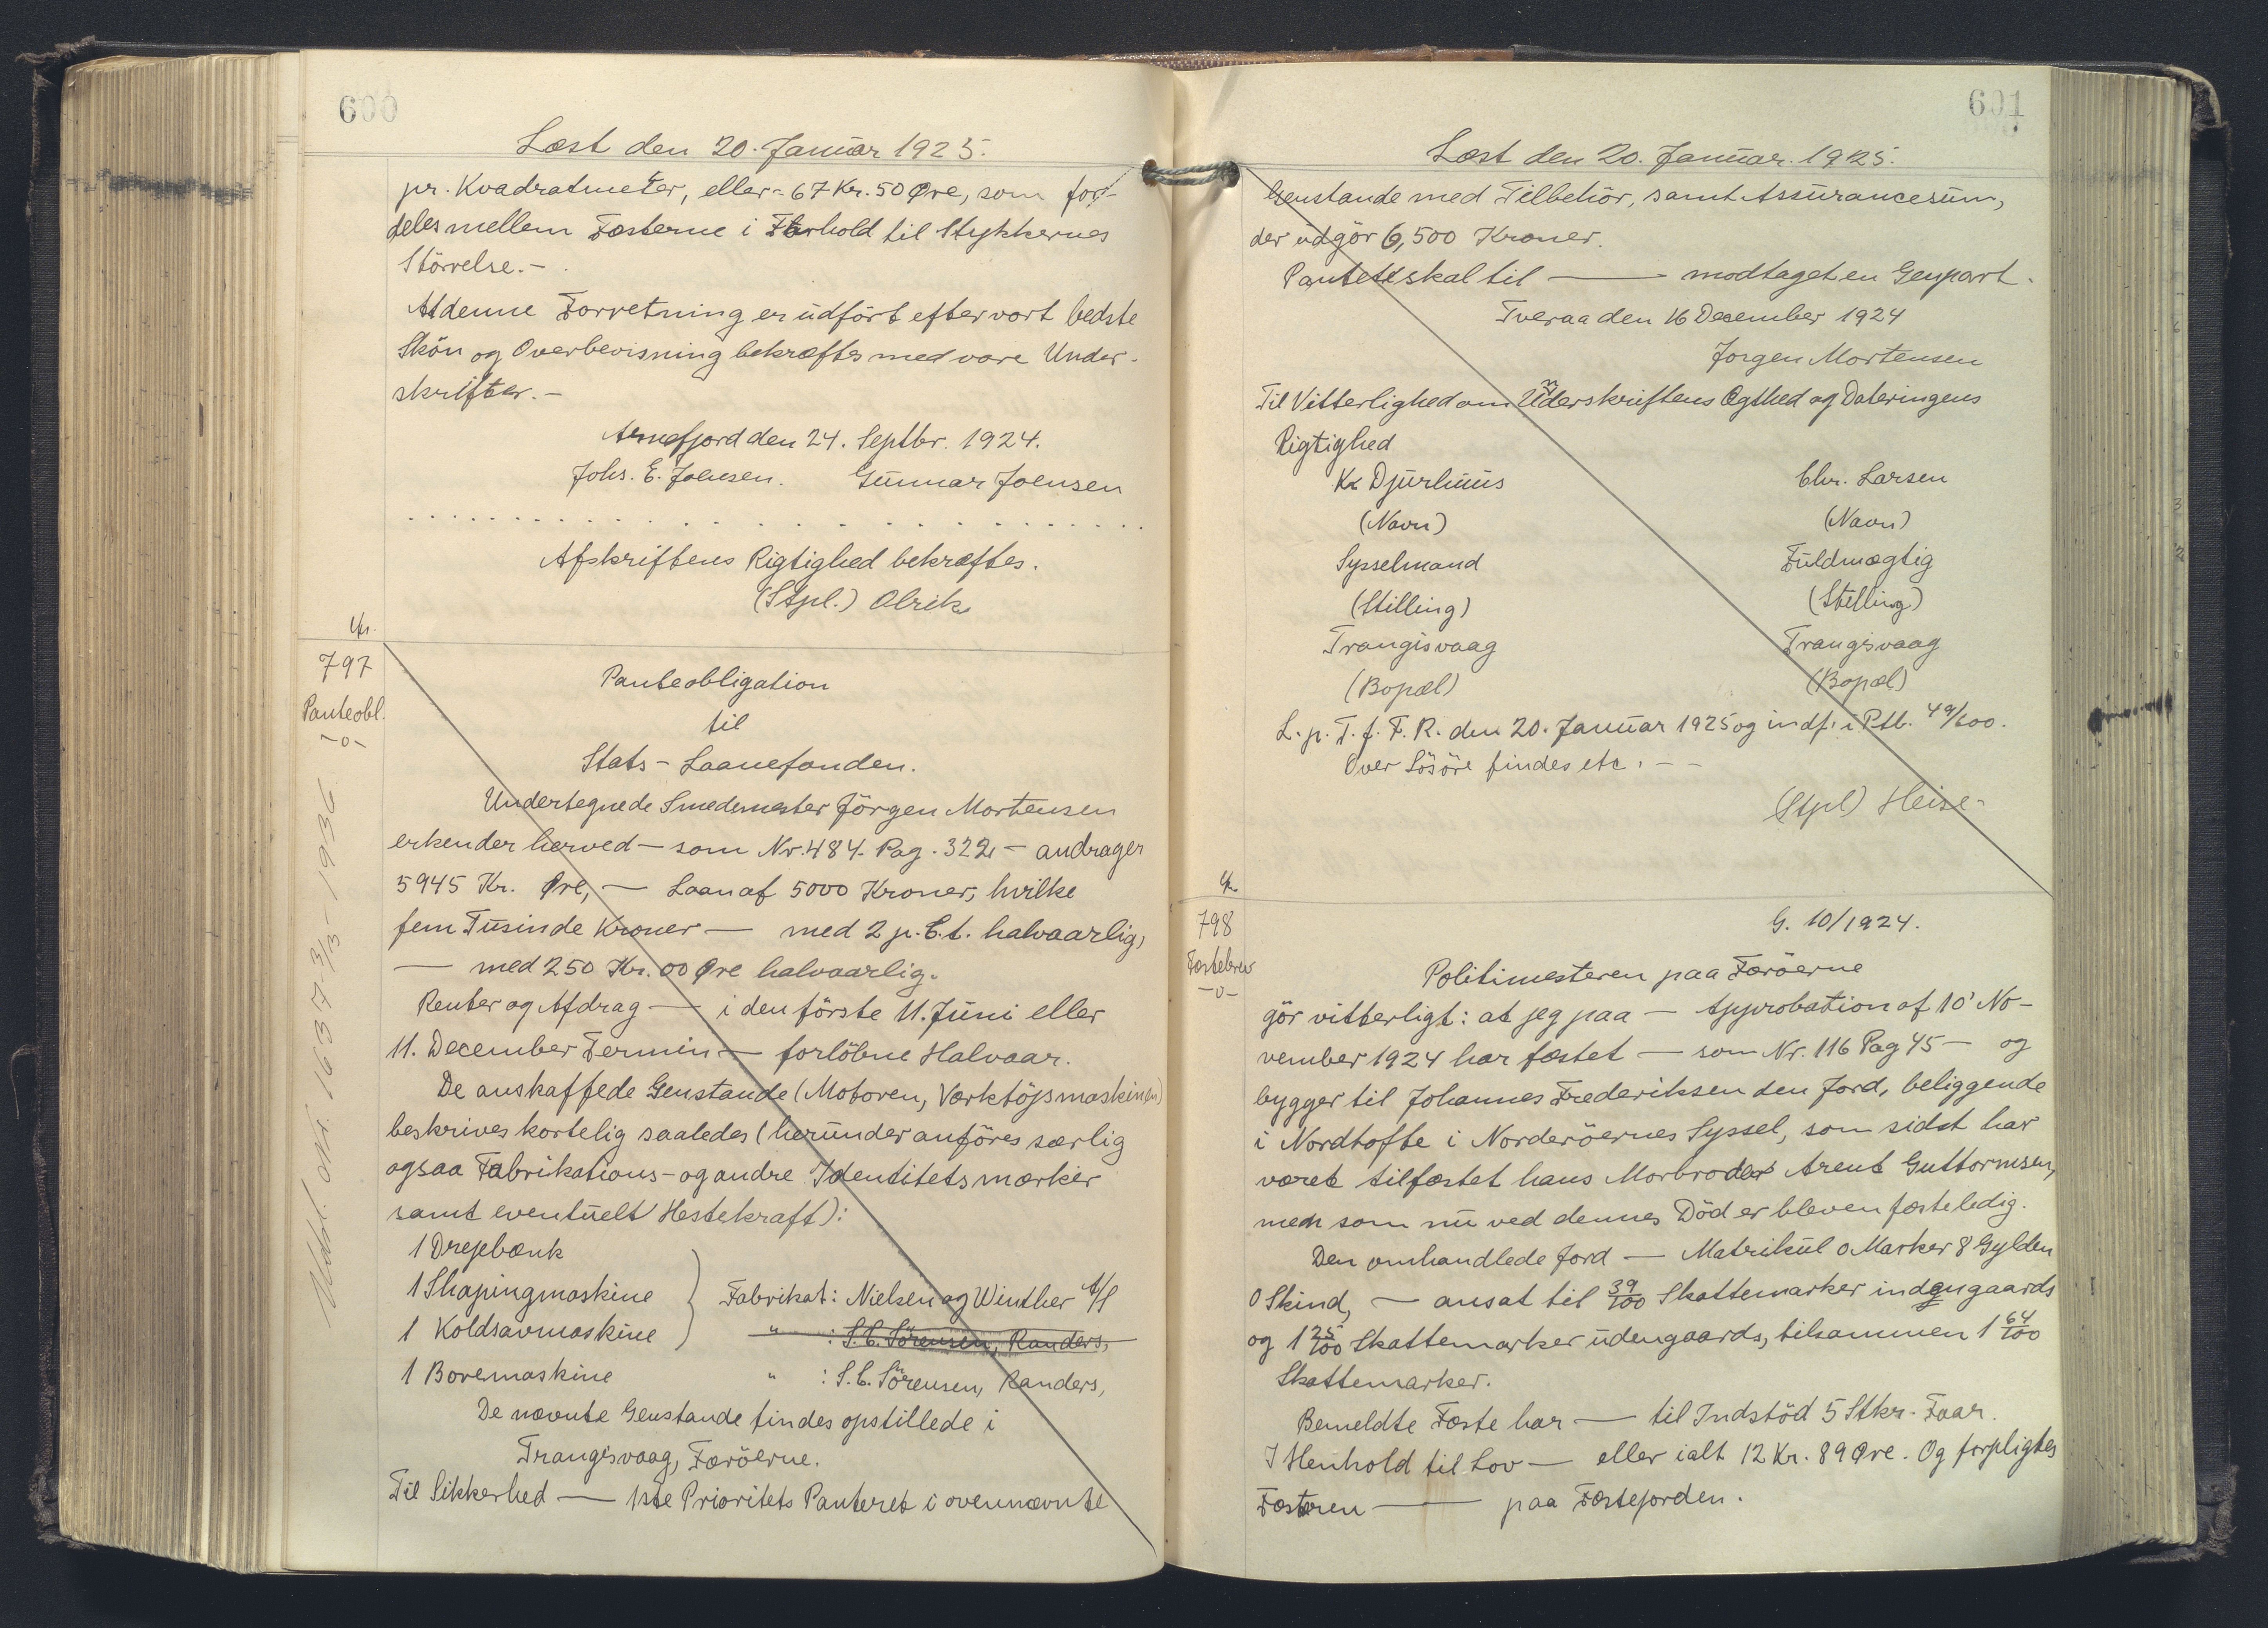 600
Læst den 20. Januar 1925.
pr. Kvadratmeter, eller = 67 Kr. 50 Øre, som for-
deles mellem Fæsterne i Forhold til Stykkernes
Större​lse. -
At denne Forretning er udført efter vort bedste
Skön og Overbevisning bekræftes med vore Under-
skrifter. -
Arnefjord den 24. Septbr. 1924.
Johs. E. Joensen. Gunnar Joensen
Afskriftens Rigtighed bekræftes.
(Stpl.) Olrik
Nr.
797
Panteobl.
-o-
Udsl. Nr. 1637-3/3-1936
Panteobligation
til
Stats-Laanefonden.
Undertegnede Smedemester Jörgen Mortensen
erkender herved — som Nr. 484. Pag. 322 — andrager
5945 Kr. Øre, — Laan af 5000 Kroner, hvilke
fem Tusinde Kroner — med 2 p. C.t. halvaarlig,
— med 250 Kr. 00 Øre halvaarlig.
Renter og Afdrag — i den förste 11. Juni eller
11. December Termin — forlöbne Halvaar.
De anskaffede Genstande (Motoren, Værktöjsmaskinen)
beskrives kortelig saaledes (herunder anföres særlig
ogsaa Fabrikations- og andre Identitetsmærker
samt eventuelt Hestekraft):
1 Drejebænk
1 Shapingmaskine } Fabrikat: Nielsen og Winther A/S
1 Koldsavmaskine " : S.C. Sörensen, Randers,
1 Boremaskine " : S.C. Sörensen, Randers,
De nævnte Genstande findes opstillede i
Trangisvaag, Færöerne.
Til Sikkerhed — 1ste Prioritets Panteret i ovennævnte
601
Læst den 20. Januar. 1925.
Genstande med Tilbehör, samt Assurancesum,
der udgör 6,500 Kroner.
Pantet skal til — modtaget en Genpart.
Tveraa den 16 December 1924
Jorgen Mortensen
Til Vitterlighed om Underskriftens Ægthed og Dateringens
Rigtighed
Kr Djurhuus Chr. Larsen
(Navn) (Navn)
Sysselmand Fuldmægtig
(Stilling) (Stilling)
Trangisvaag Trangisvaag
(Bopæl) (Bopæl)
L. p. T. f. F. R. den 20. Januar 1925 og indf. i Ptb. 49/600.
Over Lösöre findes etc. - -
(Stpl) Heise-
Nr.
798
Fæstebrev
-o-
G. 10/1924.
Politimesteren paa Færöerne
gör vitterligt: at jeg paa — Approbation af 10' No-
vember 1924 har fæstet — som Nr. 116 Pag 45 — og
bygger til Johannes Frederiksen den Jord, beliggende
i Nordtofte i Norderöernes Syssel, som sidst har
været tilfæstet hans Morbroder Arent Guttormsen,
men som nu ved dennes Död er bleven fæsteledig.
Den omhandlede Jord — Matrikul 0 Marker 8 Gylden
0 Skind, — ansat til 39/100 Skattemarker indengaards
og 1 25/100 Skattemarker udengaards, tilsammen 1 64/100
Skattemarker.
Bemeldte Fæste har — til Indstöd 5 Stkr. Faar.
I Henhold til Lov — eller ialt 12 Kr. 89 Øre. Og forpligtes
Fæsteren — paa Fæstejorden.